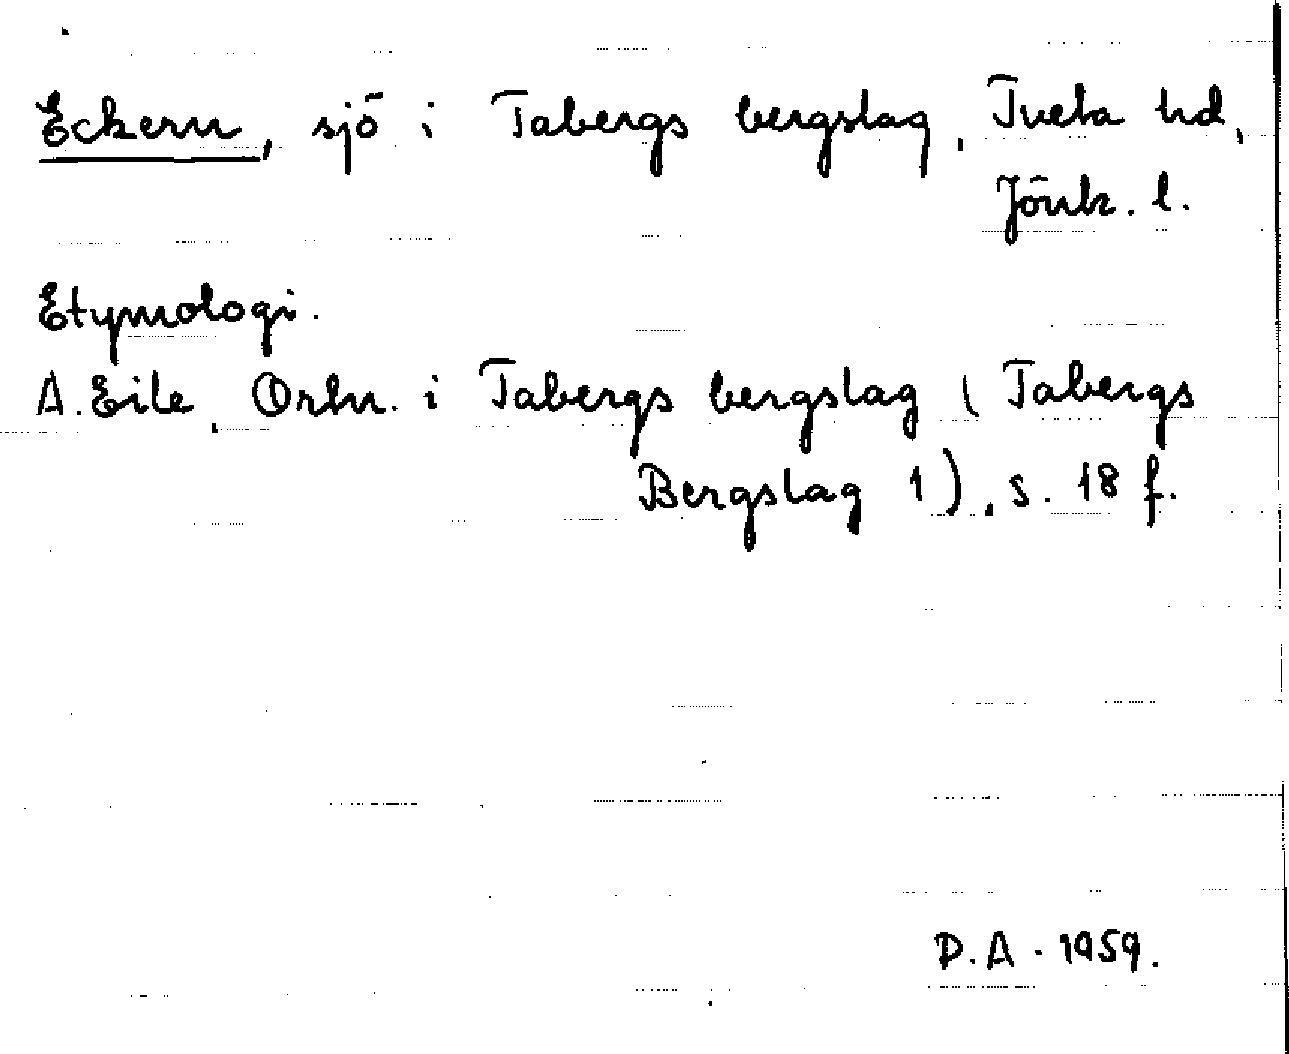 Eckern, sjö i Tabergs bergslag, Tveta hd,
Jönk. l.
Etymologi.
A. Eile, Ortn. i Tabergs bergslag (Tabergs
Bergslag 1), s. 18 f.
D.A. 1959.